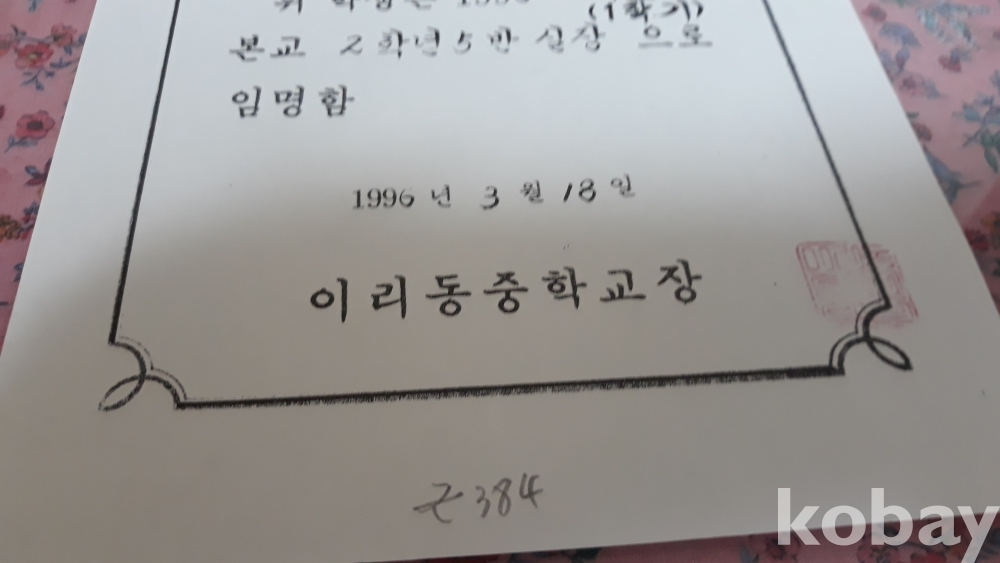 위 학생은 1996
(1학기)
본교 2학년 5반 실장 으로
임명함
1996 년 3 월 18 일
이리동중학교장
군384
kobay